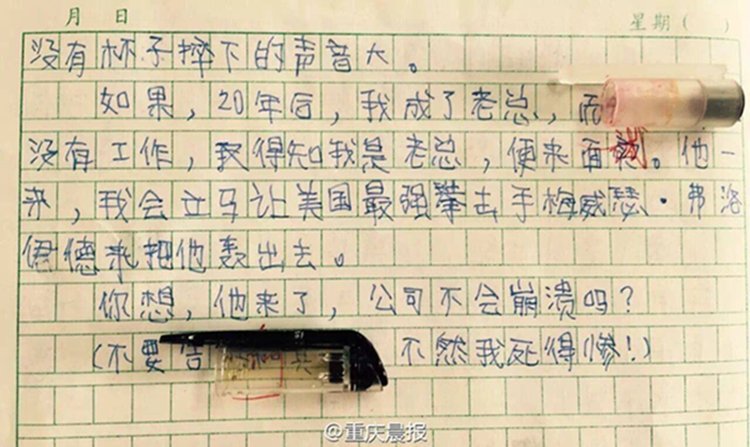 月 日 星期( )
没有杯子摔下的声音大。
如果，20年后，我成了老总，而
没有工作，又得知我是老总，便来面。他一
来，我会立马让美国最强拳击手梅威瑟·弗洛
伊德来把他轰出去。
你想，他来了，公司不会崩溃吗？
(不要告 不然我死得惨!)
@重庆晨报